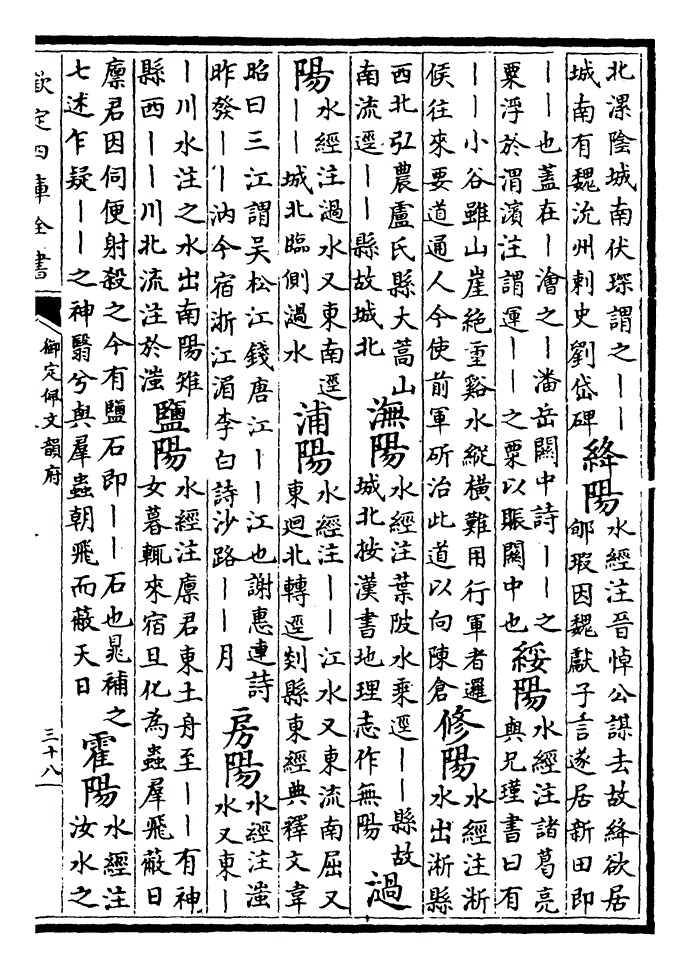 北漯陰城南伏琛謂之丨丨
城南有魏沇州刺史劉岱碑
絳陽
水經注晉悼公謀去故絳欲居
郇瑕因魏獻子言遂居新田即
丨丨也蓋在丨澮之丨潘岳關中詩丨丨之
粟浮於渭濱注謂運丨丨之粟以賑關中也
綏陽
水經注諸葛亮
與兄瑾書曰有
丨丨小谷雖山崖絕重谿水縱橫難用行軍者邏
侯往來要道通人今使前軍斫治此道以向陳倉
修陽
水經注淅
水出淅縣
西北弘農盧氏縣大蒿山
南流逕丨丨縣故城北
潕陽
水經注葉陂水乘逕丨丨縣故
城北按漢書地理志作無陽
濄
陽
水經注濄水又東南逕
丨丨城北臨側濄水
浦陽
水經注丨丨江水又東流南屈又
東迴北轉逕剡縣東經典釋文韋
昭曰三江謂吳松江錢唐江丨丨江也謝惠連詩
昨發丨丨汭今宿浙江湄李白詩沙路丨丨月
房陽
水經注滍
水又東丨
丨川水注之水出南陽雉
縣西丨丨川北流注於滍
鹽陽
水經注廪君東土舟至丨丨有神
女暮輒來宿旦化為蟲羣飛蔽日
廪君因伺便射殺之今有鹽石即丨丨石也晁補之
七述乍疑丨丨之神翳兮與羣蟲朝飛而蔽天日
霍陽
水經注
汝水之
欽定四庫全書
御定佩文韻府
三十八